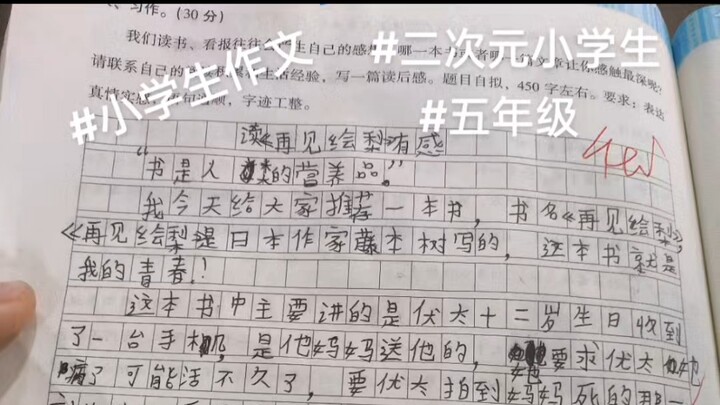 习作。(30分)
我们读书、看报往往会产生自己的感想。哪一本书或者哪一篇文章让你感触最深呢?
请联系自己的生活经验，写一篇读后感。题目自拟，450字左右。要求：表达
真情实感，语句通顺，字迹工整。
#小学生作文
#三次元小学生
#五年级
读《再见绘梨》有感
“书是人类的营养品。”
我今天给大家推荐一本书，书名《再见绘梨》，
《再见绘梨》是日本作家藤本树写的，这本书就是
我的青春！
这本书中主要讲的是伏太十二岁生日收到
了一台手机，是他妈妈送他的，她要求伏太她
病了可能活不久了，要伏太拍到妈妈死的那一